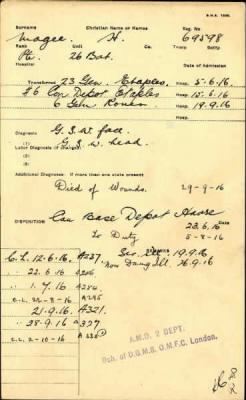 B.M.B. 1936.
Surname Christian Name or Names Reg. No.
Magee. H. 69598
Rank Unit Co. Troop Batty.
Pte. 26 Bat.
Hospital Date of Admission
Transferred 23 Gen. Etaples Hosp. 5-6-16
#6 Con Depot Etaples Hosp. 12-6-16
6 Genl Rouen Hosp. 19-9-16
Diagnosis G.S.W. face
(1) G.S.W. head.
Later Diagnosis (if changed)
Additional Diagnoses: If more than one state present
Died of Wounds. 29-9-16
DISPOSITION Can Base Depot Havre 23.6.16
To Duty 5-8-16
REMARKS
C.L. 12-6-16 A237. 19-9-16
22.6.16 A246 Now Dang Ill 26-9-16
1.7.16 A254.
C.L. 22-8-16 A295
21.9.16 A321.
28-9-16 A327
C.L. 2-10-16 A330
A.M.D. 2 DEPT.
Bch. of D.G.M.S. O.M.F.C. London.